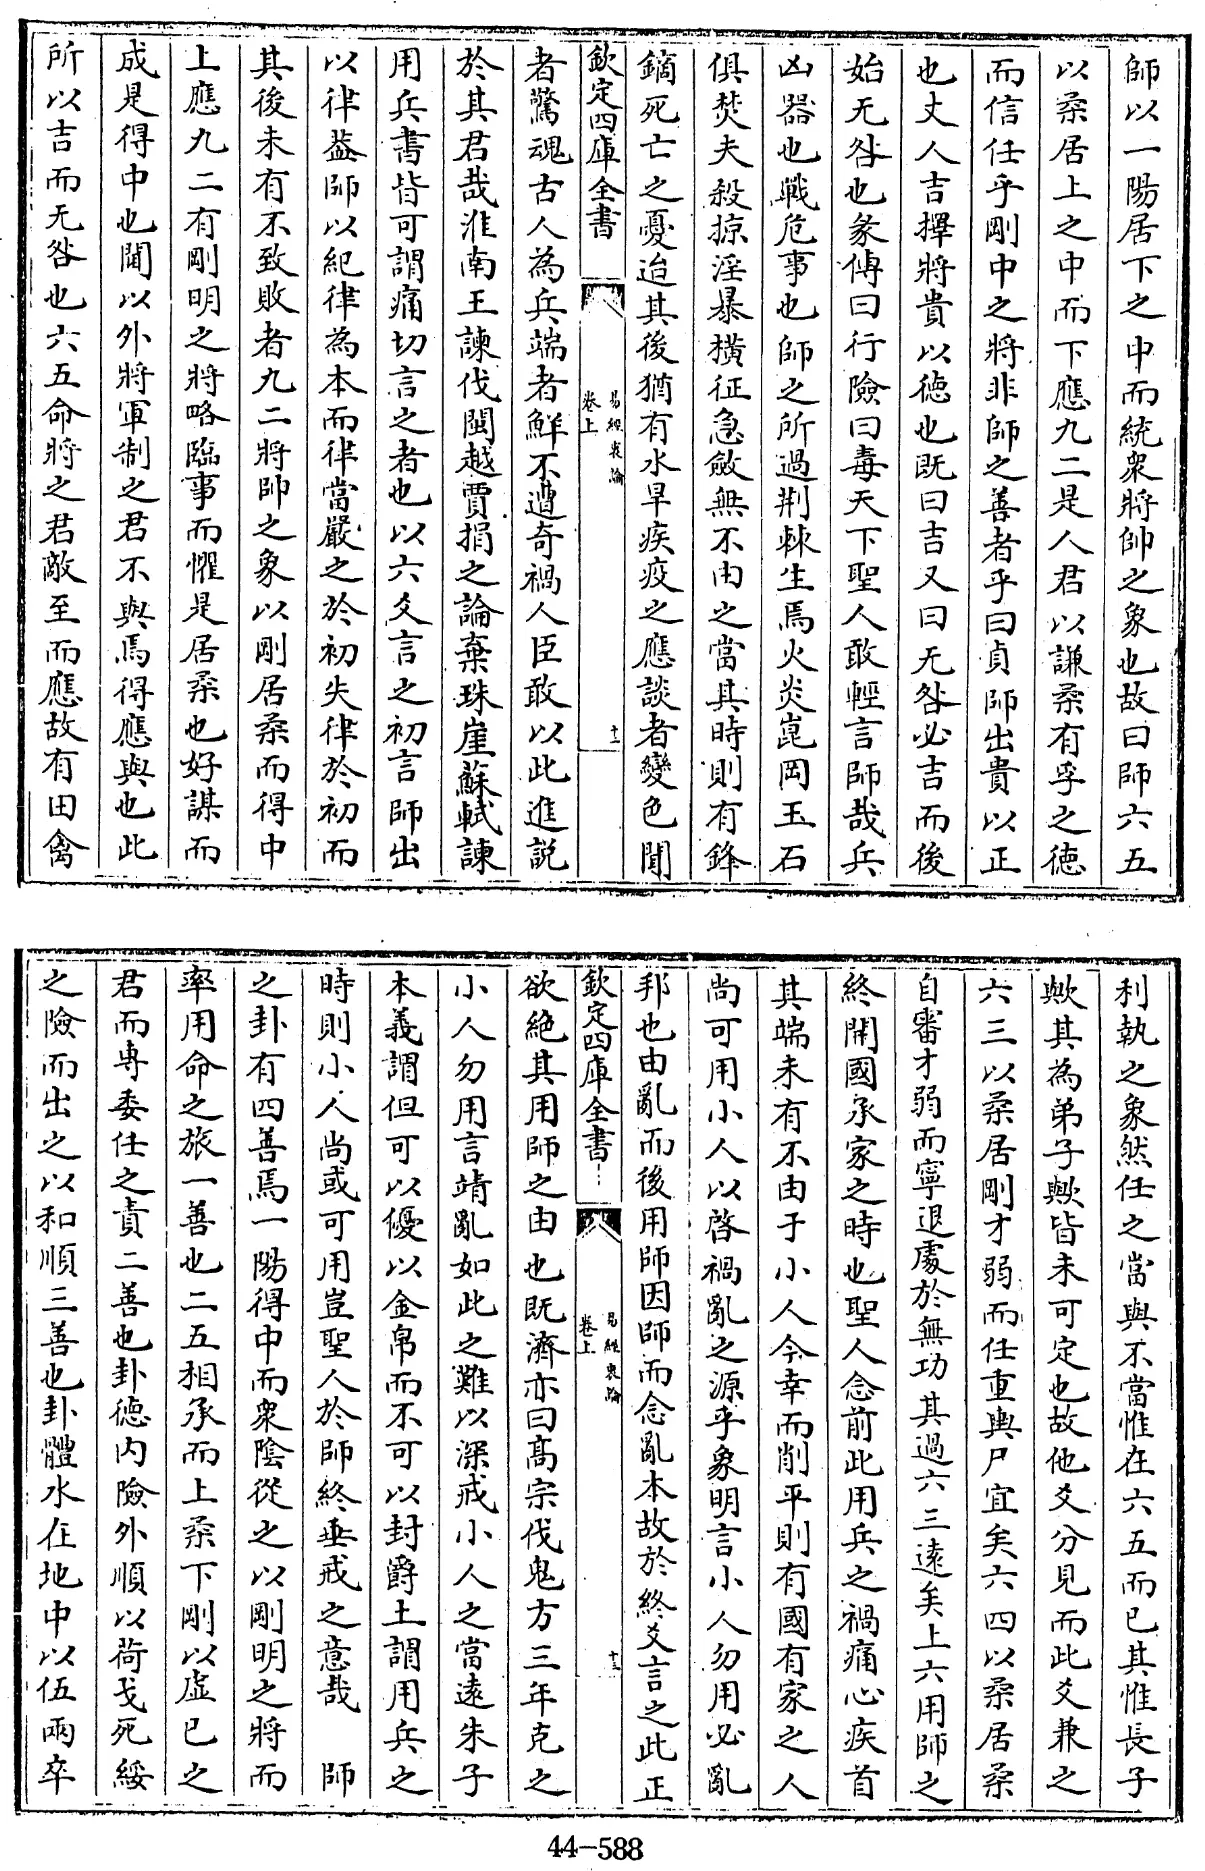 師以一陽居下之中而統衆將帥之象也故曰師六五
以柔居上之中而下應九二是人君以謙柔有孚之徳
而信任乎剛中之將非師之善者乎曰貞師出貴以正
也丈人吉擇將貴以徳也既曰吉又曰无咎必吉而後
始无咎也彖傳曰行險曰毒天下聖人敢輕言師哉兵
凶器也戰危事也師之所過荆棘生焉火炎崑岡玉石
俱焚夫殺掠淫暴橫征急斂無不由之當其時則有鋒
鏑死亡之憂迨其後猶有水旱疾疫之應談者變色聞
欽定四庫全書
易經衷論
卷上
十二
者驚魂古人為兵端者鮮不遭奇禍人臣敢以此進説
於其君哉淮南王諫伐閩越賈捐之論棄珠崖蘇軾諫
用兵書皆可謂痛切言之者也以六爻言之初言師出
以律葢師以紀律為本而律當嚴之於初失律於初而
其後未有不致敗者九二將帥之象以剛居柔而得中
上應九二有剛明之將略臨事而懼是居柔也好謀而
成是得中也閫以外將軍制之君不與焉得應與也此
所以吉而无咎也六五命將之君敵至而應故有田禽
利執之象然任之當與不當惟在六五而已其惟長子
歟其為弟子歟皆未可定也故他爻分見而此爻兼之
六三以柔居剛才弱而任重輿尸宜矣六四以柔居柔
自審才弱而寧退處於無功其過六三遠矣上六用師之
終開國承家之時也聖人念前此用兵之禍痛心疾首
其端未有不由于小人今幸而削平則有國有家之人
尚可用小人以啓禍亂之源乎象明言小人勿用必亂
邦也由亂而後用師因師而念亂本故於終爻言之此正
欽定四庫全書
易經衷論
卷上
十三
欲絶其用師之由也既濟亦曰髙宗伐鬼方三年克之
小人勿用言靖亂如此之難以深戒小人之當遠朱子
本義謂但可以優以金帛而不可以封爵土謂用兵之
時則小人尚或可用豈聖人於師終垂戒之意哉　師
之卦有四善焉一陽得中而衆陰從之以剛明之將而
率用命之旅一善也二五相承而上柔下剛以虛已之
君而専委任之責二善也卦徳内險外順以荷戈死綏
之險而出之以和順三善也卦體水在地中以伍兩卒
44-588